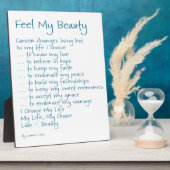 Feel My Beauty
Cancer changes being lost
In my life I choose
. . . to honor my love
. . . to believe in hope
. . . to keep my faith
. . . to embrace my peace
. . . to build my friendships
. . . to keep my sweet memories
. . . to accept my grace
. . . to embrace my courage
I Choose My Life
My Life, My Choice
Love = Beauty
By